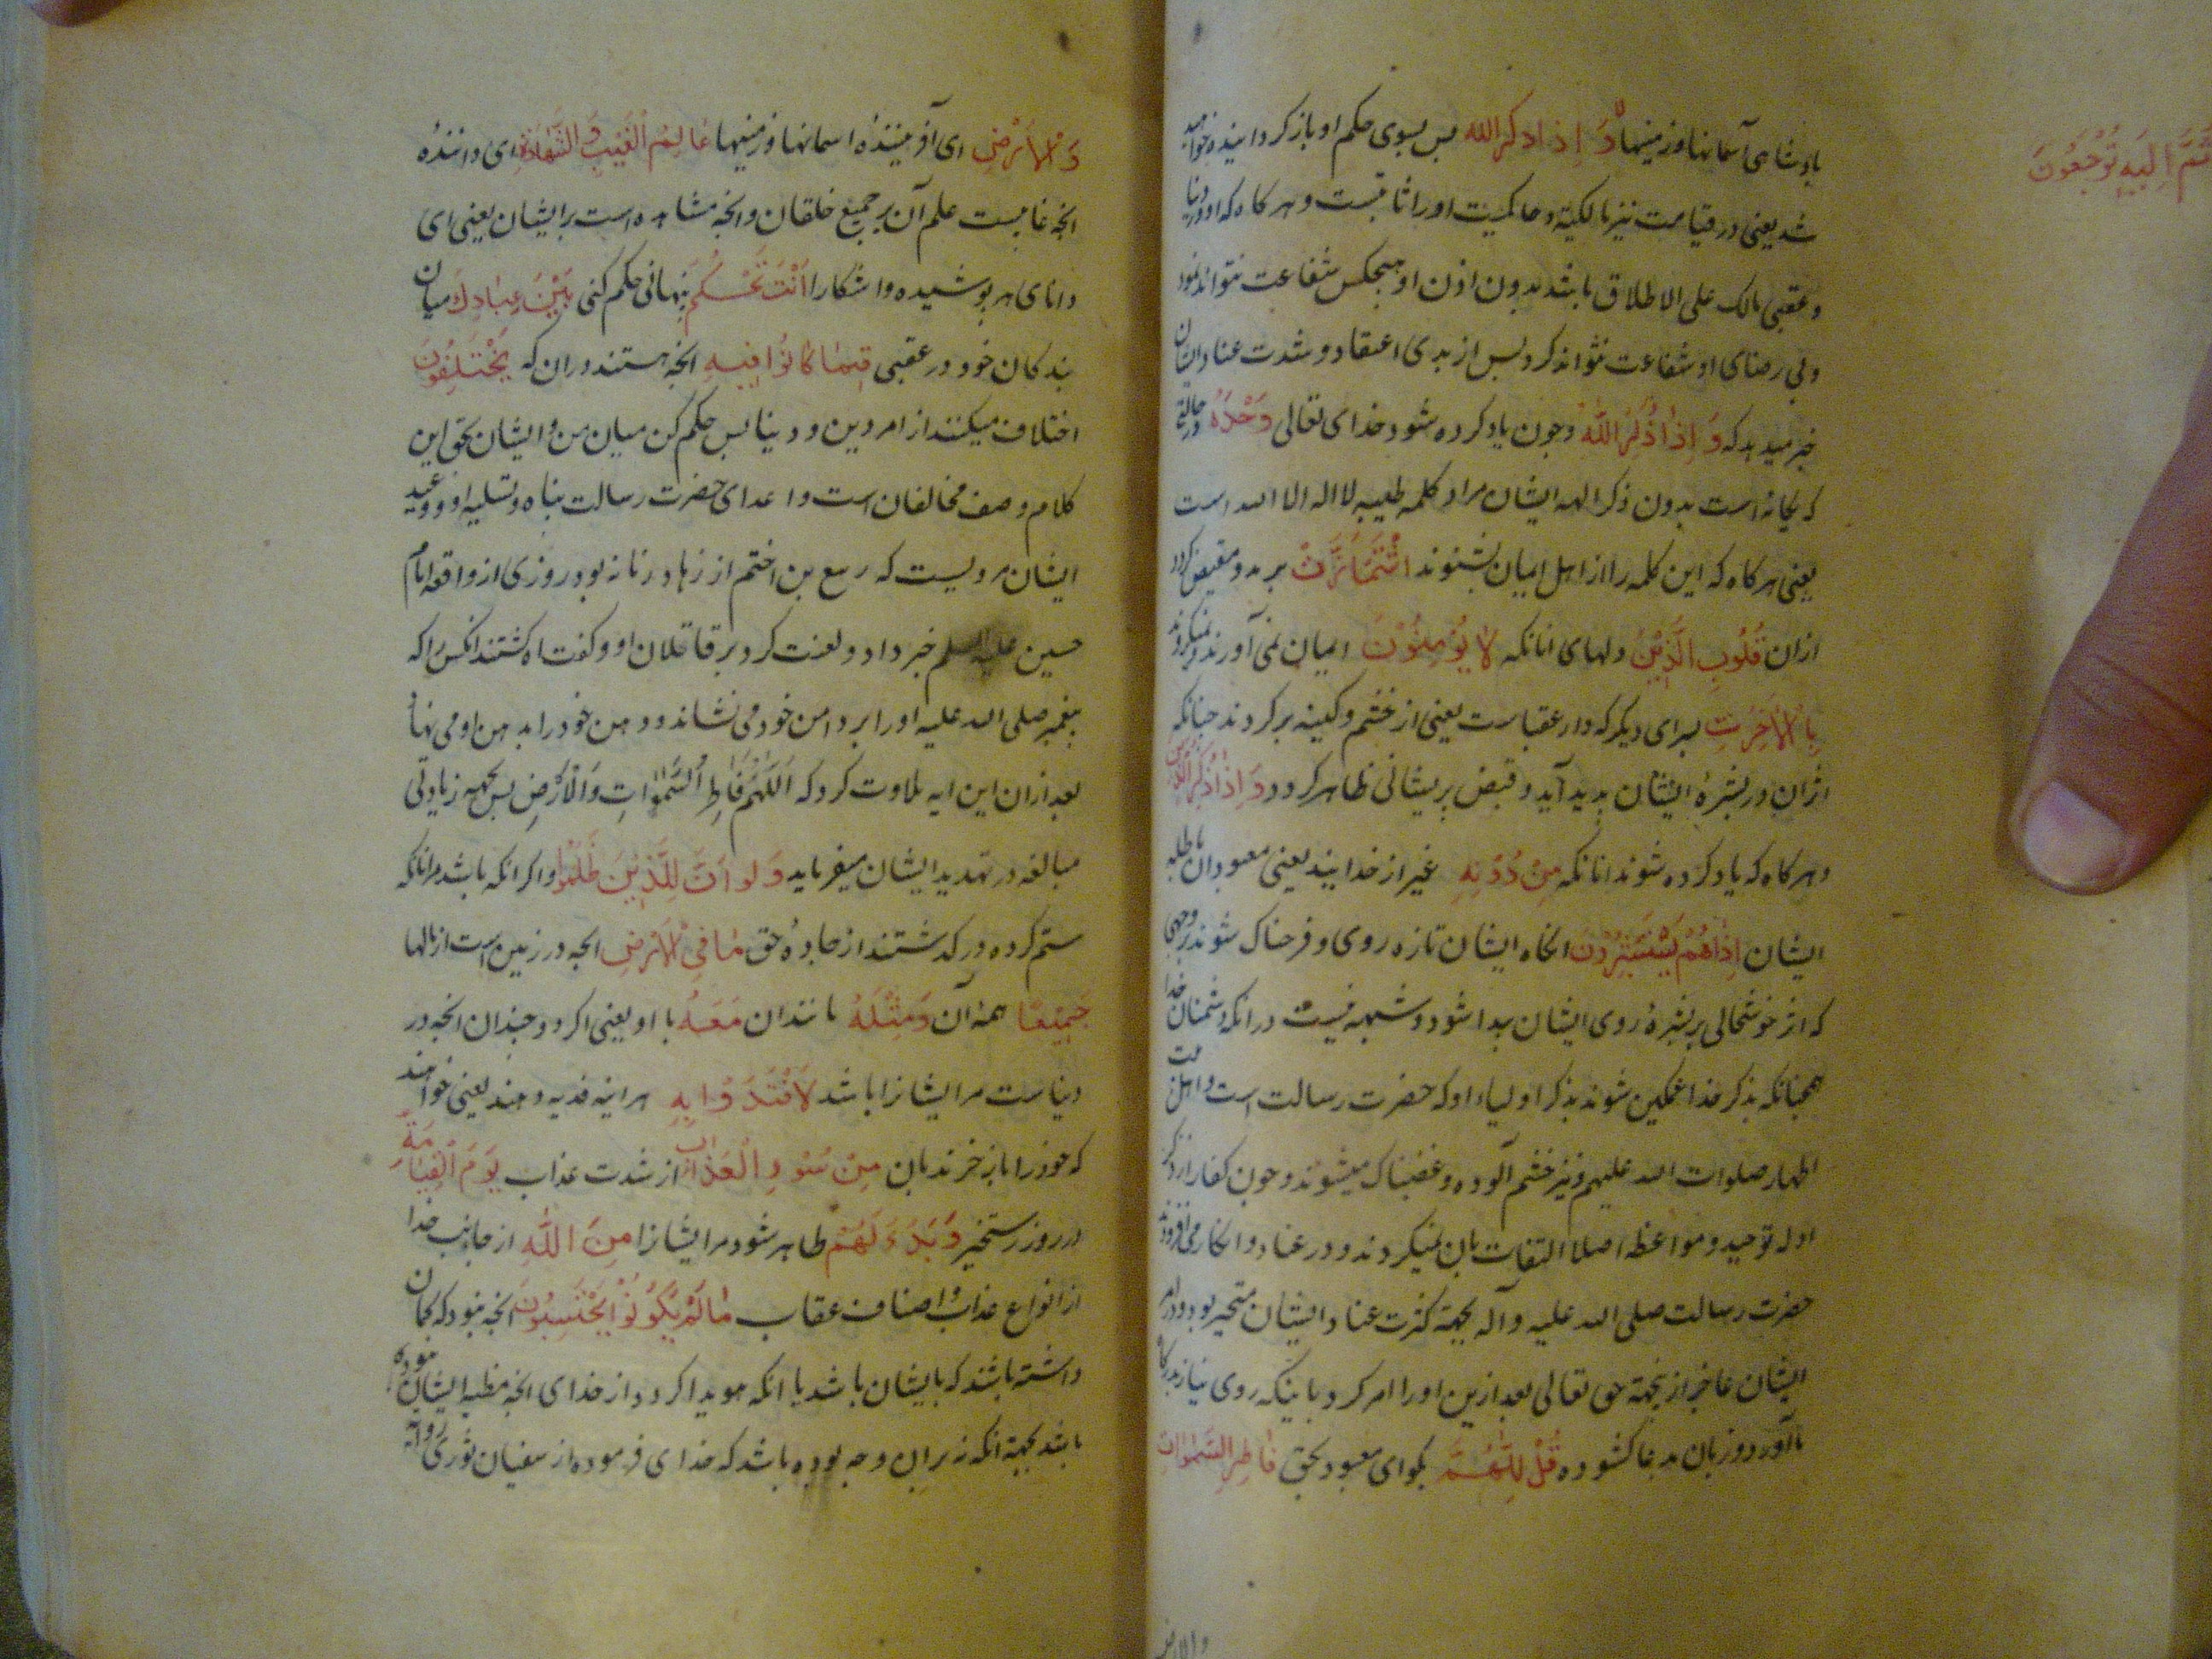 ثُمَّ اِلَیهِ تُرْجَعُونَ
پادشاهی آسمانها و زمینها وَ اِذا ذکر الله پس بسوی حکم او بازکردانیده خواهید
شد یعنی در قیامت نیز مالکیة و حاکمیت او را ثابتست و هرکاه که او در دنیا
و عقبی مالک علی الاطلاق باشد بدون اذن او هیچکس شفاعت نتواند نمود
و بی رضای او شفاعت نتواند کرد پس از بدی اعتقاد و شدت عناد ایشان
خبر میدهد که وَ اِذٰا ذُکِرَ اللّٰهُ و چون یاد کرده شود خدای تعالی وَحْدَهُ در حالتی
که یکانه است بدون ذکر الهه ایشان مراد کلمه طیبه لا اله الا الله است
یعنی هرکاه که این کلمه را از اهل ایمان بشنوند اشْمَأَزَّتْ برمد و منقبض کردد
ازان قُلُوبِ الَّذِیْنَ دلهای انانکه لٰا یُؤمِنُوْنَ ایمان نمی آورند و نمیکروند
بِالْاٰخِرَتِ بسرای دیکر که دار عقباست یعنی از خشم و کینه برکردند چنانکه
اثر آن در بشرهٔ ایشان پدید آید و قبض پریشانی ظاهر کردد وَ اِذٰا ذُکِرَ الَّذِیْنَ
و هرکاه که یاد کرده شوند انانکه مِنْ دُوْنِهِ غیر از خدایند یعنی معبودان باطله
ایشان اِذٰا هُمْ یَسْتَبْشِرُوْنَ انکاه ایشان تازه روی و فرحناک شوند بر وجهی
که اثر خوشحالی بر بشرهٔ روی ایشان پیدا شود و شبهه نیست در انکه دشمنان خدا
همچنانکه بذکر خدا غمکین شوند بذکر اولیاء او که حضرت رسالت است و اهل بیت
اطهار صلوات الله علیهم نیز خشم آلوده و غضبناک میشوند و چون کفار از ذکر
ادله توحید و مواعظه اصلا التفات بان نمیکردند و در عناد و انکار می افزودند
حضرت رسالت صلی الله علیه و آله بجهة کثرت عناد ایشان متحیر بود و در امر
ایشان عاجز ازینجهة حق تعالی بعد ازین او را امر کرد باینکه روی نیاز بدرکاه
ما آورد و زبان بدعا کشوده قُلْ لِلّٰهُمَّ بکو ای معبود بحق فٰاطِرِ السَّمٰوٰاتِ
والارض
وَ الْاَرْضِ ای آفریننده اسمانها و زمینها عٰالِمُ الْغَیْبِ وَ الشَّهٰادَةِ ای داننده
انچه غایبست علم آن بر جمیع خلقان و انچه مشاهده است بر ایشان یعنی ای
دانای هر پوشیده و اشکارا اَنْتَ تَحْکُمُ بنهانی حکم کنی بَیْنَ عِبٰادِکَ میان
بندکان خود در عقبی فِیمٰا کٰانُوا فِیهِ انچه هستند دران که یَخْتَلِفُونَ
اختلاف میکنند از امر دین و دنیا پس حکم کن میان من و ایشان بحق این
کلام وصف مخالفان است و اعدای حضرت رسالت پناه و تسلیه او و وعید
ایشان مرویست که ربیع بن اختم از زهاد زمانه بود روزی از واقعه امام
حسین علیه السلم خبر داد و لعنت کرد بر قاتلان او و کفت اه کشتند انکس را که
پیغمبر صلی الله علیه او را بر دامن خود می نشاند و دهن خود را بدهن او می نهاد
بعد ازان این ایه تلاوت کرد که اَللّٰهُمَّ فَاطِرَ السَّمٰوٰاتِ وَالْاَرْضِ پس بجهه زیادتی
مبالغه در تهدید ایشان میفرماید وَ لَو اَنَّ لِلَّذِیْنَ ظَلَمُوا و اکر انکه باشد مر انانکه
ستم کرده و درکذشتند از جادهٔ حق مٰا فِی الْاَرْضِ انچه در زمین است از مالها
جَمِیْعًا همه آن وَ مِثْلَهُ مانند ان مَعَهُ با او یعنی اکر دو چندان انچه در
دنیاست مر ایشانرا باشد لَافْتَدَوْا بِهِ هراینه فدیه دهند یعنی خواهند
که خود را باز خرند بان مِنْ سُوءِ الْعَذٰابِ از شدت عذاب یَوْمَ الْقِیٰامَةِ
در روز رستخیز وَ بَدَءَ لَهُمْ ظاهر شود مر ایشانرا مِنَ اللّٰهِ از جانب خدا
از انواع عذاب و اصناف عقاب مٰا لَمْ یَکُوْنُوْا یَحْتَسِبُوْنَ انچه نبود که کمان
داشته باشند که بایشان باشد یا انکه هویدا کردد از خدای انچه مظنه ایشان نبوده
باشد بجهة انکه نه بر ان وجه بوده باشد که خدای فرموده از سفیان ثوری روایة